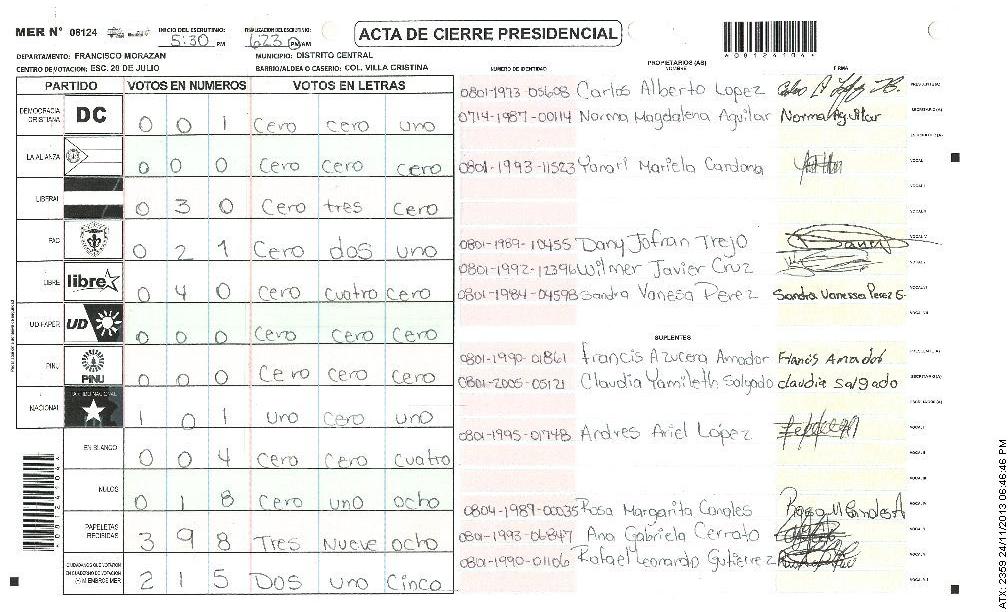 MER N° 08124 INICIO DEL ESCRUTINIO: 5:30 PM FINALIZACION DEL ESCRUTINIO: 6:23 PM AM ACTA DE CIERRE PRESIDENCIAL
DEPARTAMENTO: FRANCISCO MORAZAN MUNICIPIO: DISTRITO CENTRAL
CENTRO DE VOTACION: ESC. 20 DE JULIO BARRIO/ALDEA O CASERIO: COL. VILLA CRISTINA
PARTIDO VOTOS EN NUMEROS VOTOS EN LETRAS
DEMOCRACIA CRISTIANA DC 0 0 1 Cero cero uno
LA ALIANZA 0 0 0 Cero Cero cero
LIBERAL 0 3 0 Cero tres Cero
PAC 0 2 1 Cero dos uno
LIBRE libre 0 4 0 Cero cuatro Cero
UD FAPER UD 0 0 0 Cero Cero Cero
PINU PINU 0 0 0 Cero Cero Cero
NACIONAL PARTIDO NACIONAL 1 0 1 uno Cero uno
EN BLANCO 0 0 4 Cero Cero Cuatro
NULOS 0 1 8 Cero uno ocho
PAPELETAS RECIBIDAS 3 9 8 Tres Nueve ocho
CIUDADANOS QUE VOTARON EN CUADERNO DE VOTACION (+) MIEMBROS MER 2 1 5 Dos uno Cinco
NUMERO DE IDENTIDAD PROPIETARIOS (AS) NOMBRE FIRMA
0801-1973-05608 Carlos Alberto Lopez
0714-1987-00114 Norma Magdalena Aguilar Norma Aguilar
0801-1993-11523 Yanari Mariela Cardona
0801-1989-10455 Dany Jofran Trejo
0801-1992-12396 Wilmer Javier Cruz
0801-1984-04598 Sandra Vanesa Perez Sandra Vanessa Perez G.
SUPLENTES
0801-1990-01861 Francis Azucena Amador Francis Amador
0801-2005-05121 Claudia Yamileth Salgado claudia salgado
0801-1995-01748 Andres Ariel López
0804-1987-00035 Rosa Margarita Canales Rosa M Canales A
0801-1993-06847 Ana Gabriela Cerrato
0801-1990-01106 Rafael Leonardo Gutierrez
ATX: 2359 24/11/2013 06:46:46 PM